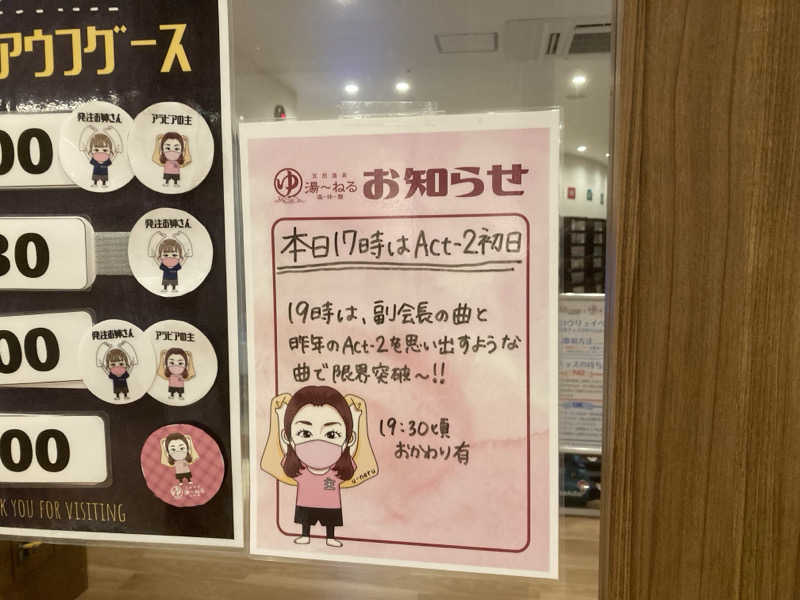 アウフグース
発注お姉さん
アラビアの主
00
発注お姉さん
30
発注お姉さん
アラビアの主
00
00
K YOU FOR VISITING
ゆ
湯〜ねる
お知らせ
本日17時はAct-2初日
19時は、副会長の曲と
昨年のAct-2を思い出すような
曲で限界突破〜!!
19:30頃
おかわり有
u-neru